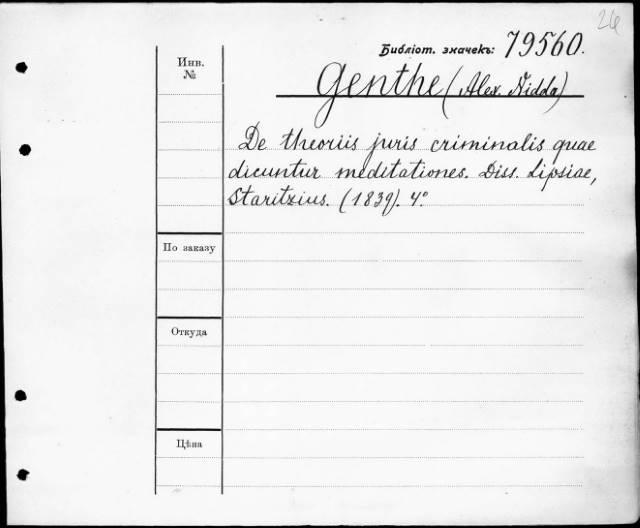 26
Библіот. значекъ: 79560.
Инв.
№
Genthe (Alex. Nidda)
De theoriis juris criminalis quae
dicuntur meditationes. Diss. Lipsiae,
Staritzius. (1839). 4°.
По заказу
Откуда
Цѣна